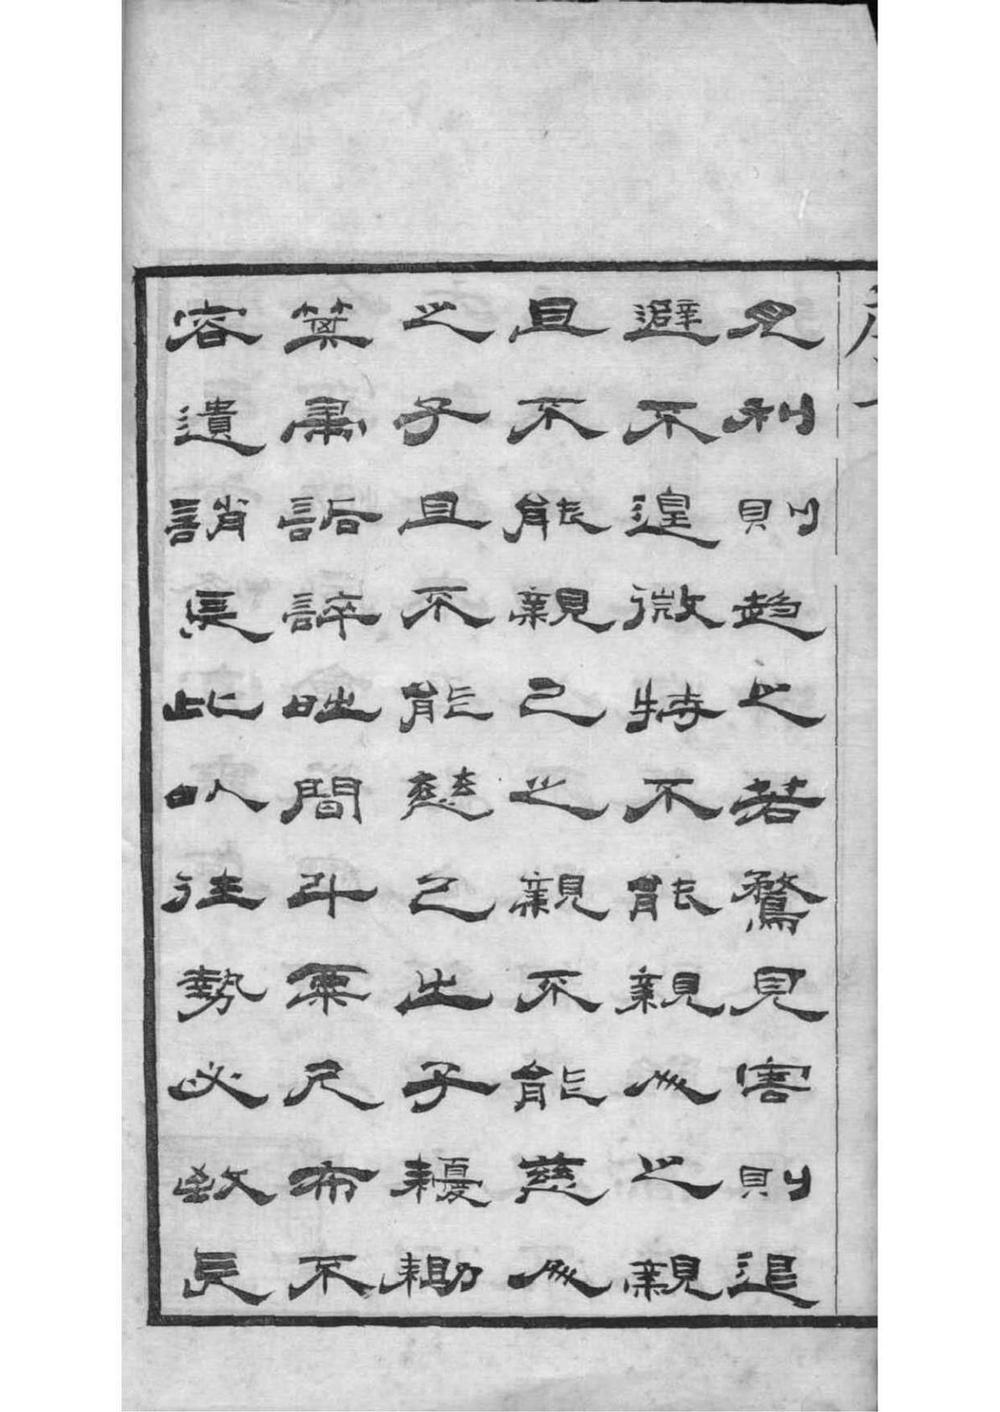 見利則趨之若鶩見害則退
避不遑微特不能親人之親
且不能親己之親不能慈人
之子且不能慈己之子耰耡
箕帚詬誶時間斗粟尺布不
容遺誚長此以往勢必致長